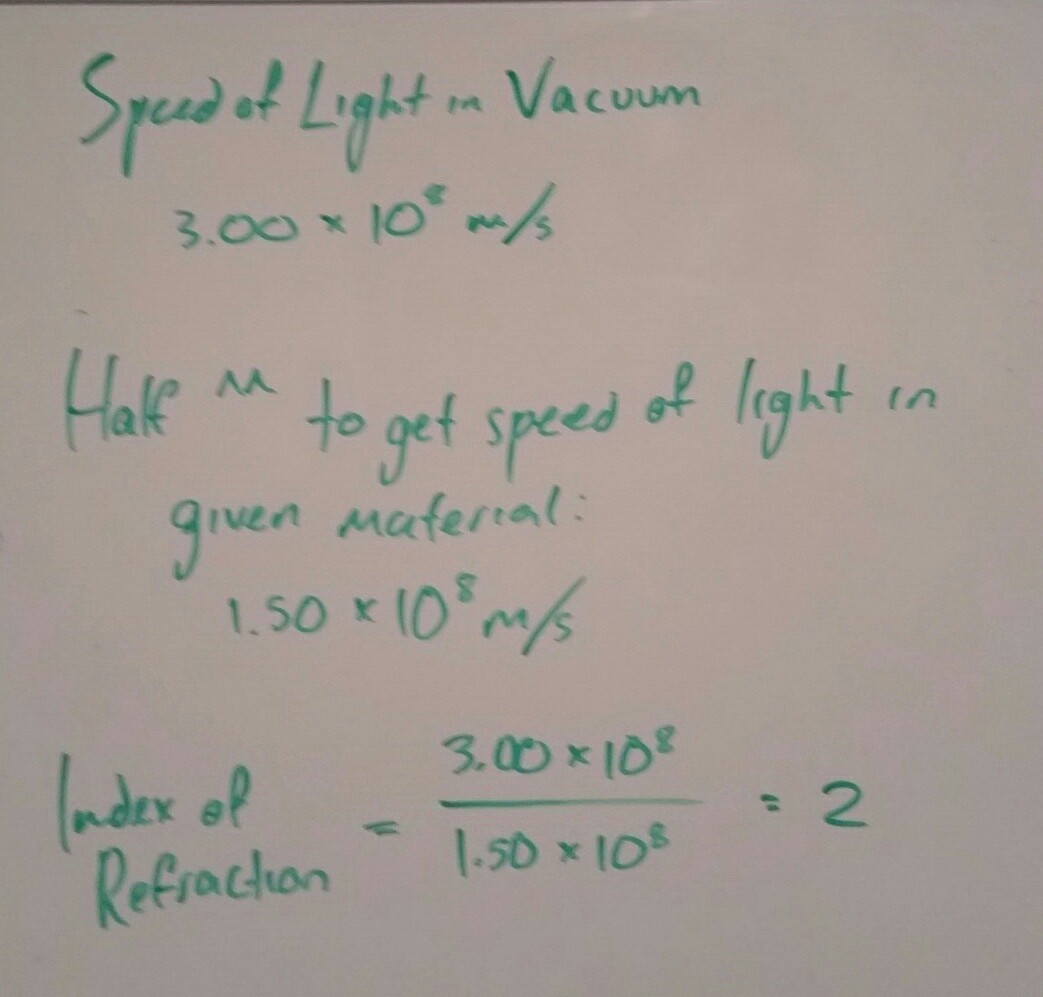 Speed of Light in Vacuum
3.00 × 10⁸ m/s
Half " to get speed of light in
given material:
1.50 × 10⁸ m/s
Index of Refraction = 3.00 × 10⁸ / 1.50 × 10⁸ = 2